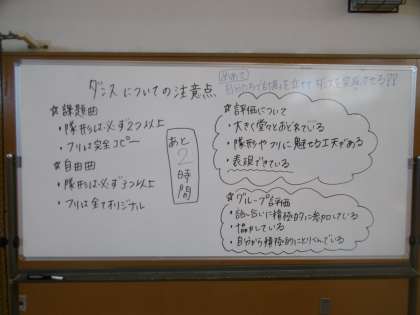 ダンスについての注意点
めあて
自分たちで計画を立てて ダンスを完成させる!!
☆課題曲
・隊形は必ず2つ以上
・フリは完全コピー
☆自由曲
・隊形は必ず3つ以上
・フリは全てオリジナル
あと
2
時
間
☆評価について
・大きく堂々とおどれている
・隊形やフリに魅せる工夫がある
・表現できている
☆グループ評価
・話し合いに積極的に参加している
・協力している
・自分から積極的にとりくんでいる